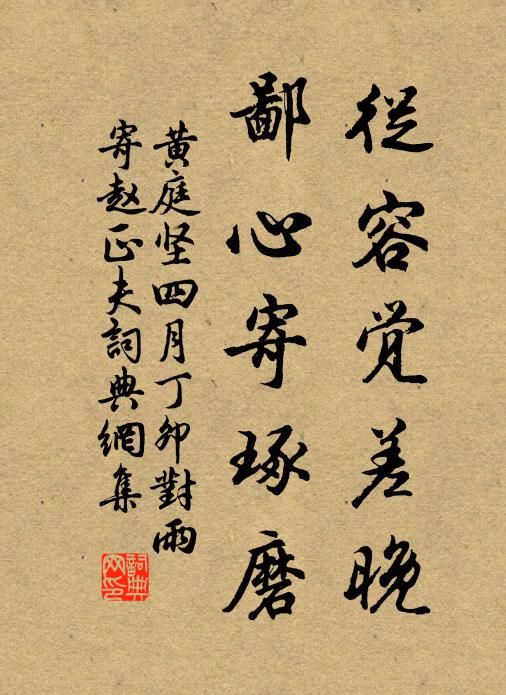 從容覺差晚
鄙心寄琢磨
黃庭坚四月丁卯對雨
寄赵正夫詞典網集
詞典网印